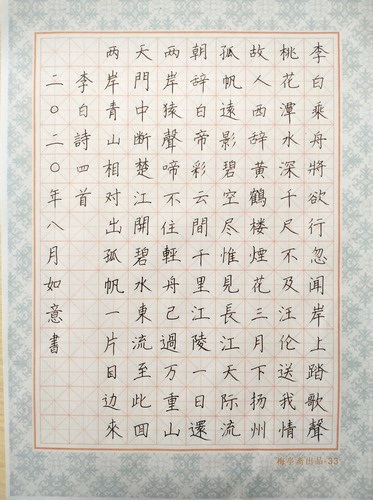 李白乘舟將欲行忽闻岸上踏歌聲
桃花潭水深千尺不及汪伦送我情
故人西辞黄鶴楼煙花三月下扬州
孤帆遠影碧空尽惟見長江天际流
朝辞白帝彩云間千里江陵一日還
两岸猿聲啼不住輕舟已過万重山
天門中断楚江開碧水東流至此回
两岸青山相对出孤帆一片日边來
李白詩四首
二〇二〇年八月如意書
出品-33